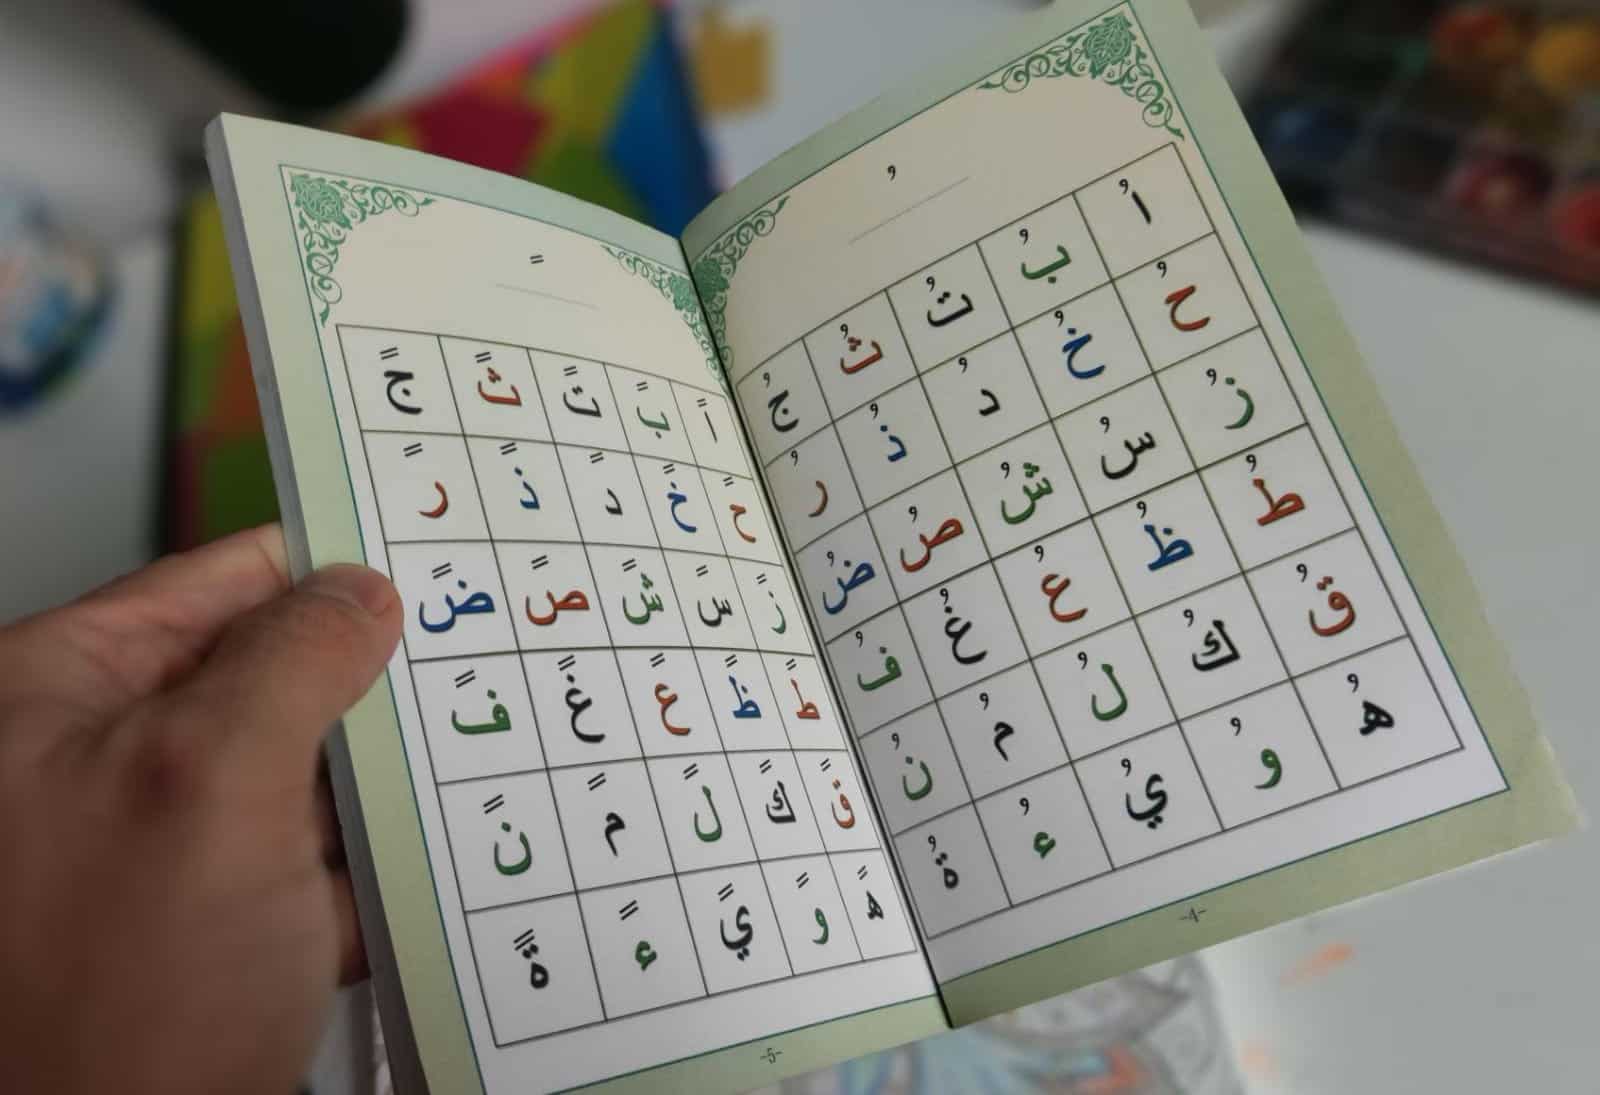 ُ
اُ بُ تُ ثُ جُ
حُ خُ دُ ذُ رُ
زُ سُ شُ صُ ضُ
طُ ظُ عُ غُ فُ
قُ كُ لُ مُ نُ
هُ وُ يُ ءُ ةُ
-4-
ً
اً بً تً ثً جً
حً خً دً ذً رً
زً سً شً صً ضً
طً ظً عً غً فً
قً كً لً مً نً
هً وً يً ءً ةً
-5-